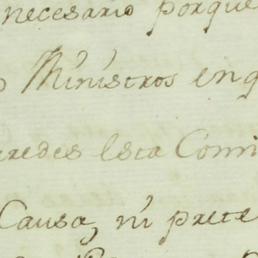 necesario porque
Ministros en q
redes esta Comi
Causa, ni prete